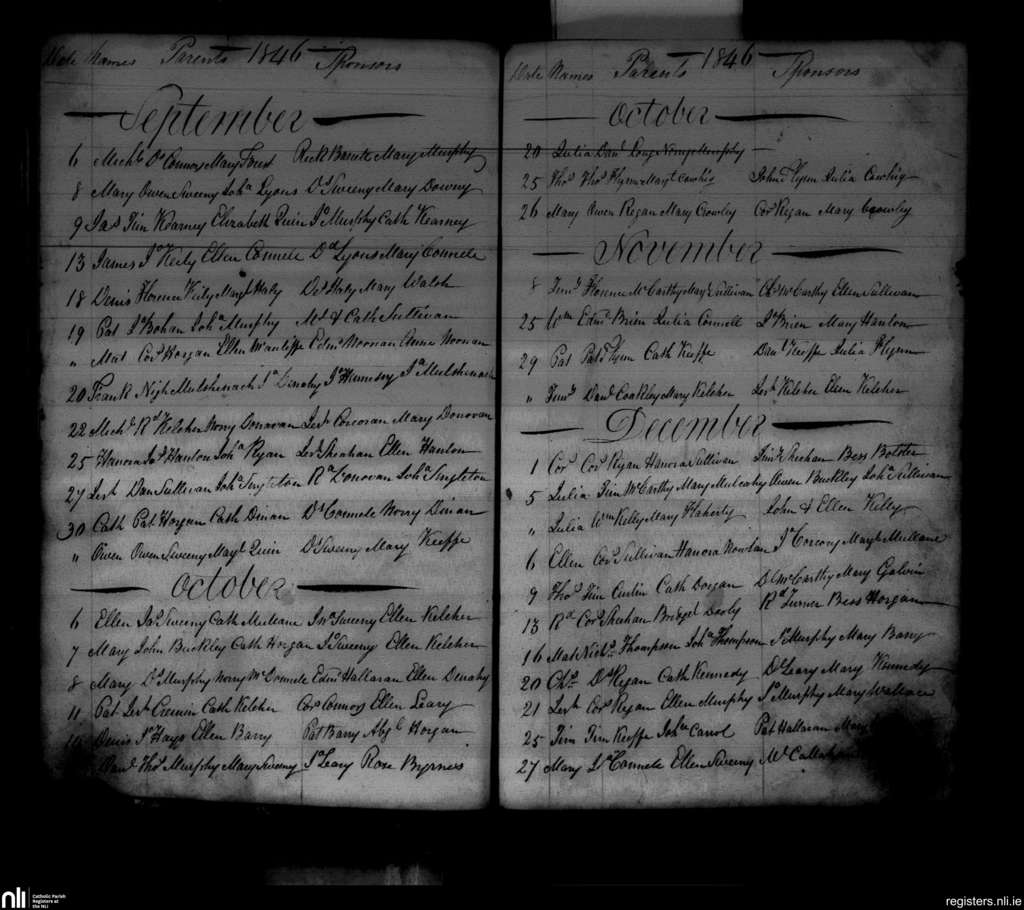 Date Names Parents 1846 Sponsors
September
6 Mich.l Os Connor Mary Foust Rick Mary Murphy
8 Mary Owen Sweeny Joh.a Lyons D.s Sweeny Mary Downy
9 Jas Tim Kearney Elizabeth Quin Jo Murphy Cath Kearney
13 James Jo Keily Ellen Connele D.d Lyons Mary Connele
18 Denis Florence Keily Marg.t Haly D.s Haly Mary Walsh
19 Pat Jo Bohan Joh.a Murphy & Cath Sullivan
" Mat Cor.s Horgan Ellen Edm.d Noonan Anne Noonan
20 Frank Nigh Mulshenach Jo Jo Mulshenach
22 Mich.l R.d Kelcher Norry Donovan Jer.h Corcoran Mary Donovan
25 Hanora Ja.s Hanlon Joh.a Ryan Jer.h Sheahan Ellen Hanlon
27 Jer.h Dan Sullivan Joh.a Singleton R.d Donovan Joh.a Singleton
30 Cath Pat Horgan Cath Dinan D.s Connele Norry Dinan
" Owen Owen Sweeny Marg.t Quin D.s Sweeny Mary Keeffe
October
6 Ellen Ja.s Sweeny Cath Mullane Jn.o Sweeny Ellen Kelcher
7 Mary John Buckley Cath Horgan Jo Sweeny Ellen Kelcher
8 Mary D.s Murphy Norry McDonnele Edm.d Hallaran Ellen Denahy
11 Pat Jer.h Cremin Cath Kelcher Cor.s Connor Ellen Leary
Denis Jo Hays Ellen Barry Pat Barry Abg.l Horgan
Dan.l Tho.s Murphy Mary Sweeny Jo Leary Rose Byrnes
Date Names Parents 1846 Sponsors
October
20 Julia Dan.l Long Norry Murphy —
25 Tho.s Tho.s Flynn Marg.t Cowhig John Flynn Julia Cowhig
26 Mary Owen Regan Mary Crowley Cor.s Regan Mary Crowley
November
8 Tim.y Florence McCarthy Mary Sullivan Ch.s McCarthy Ellen Sullivan
25 Wm Edm.d Brien Julia Connell Jo Brien Mary Hanlon
29 Pat Pat.k Flynn Cath Keeffe Dan.l Keeffe Julia Flynn
" Tim.y Dan.l Coakley Mary Kelcher Jer.h Kelcher Ellen Kelcher
December
1 Cor.s Cor.s Ryan Hanora Sullivan Tim.y Sheehan Bess
5 Julia Tim McCarthy Mary Mulcahy Owen Buckley Joh.a Sullivan
" Julia Wm Kelly Mary Flaherty John & Ellen Kelly
6 Ellen Cor.s Sullivan Hanora Nowlan Jo Corcory Marg.t Mullane
9 Tho.s Tim Curtin Cath Dorgan D.l McCarthy Mary Galvin
13 R.d Cor.s Sheehan Bridget Darly R.d Turner Bess Horgan
16 Mat Nich.s Thompson Joh.a Thompson Jo Murphy Mary Barry
20 Ch.s D.s Ryan Cath Kennedy D.s Leary Mary Kennedy
21 Jer.h Cor.s Ryan Ellen Murphy Jo Murphy Mary Wallace
25 Tim Tim Keeffe Joh.a Carrol Pat Hallaran Mary
27 Mary D.s Connele Ellen Sweeny
nli Catholic Parish Registers at the NLI
registers.nli.ie